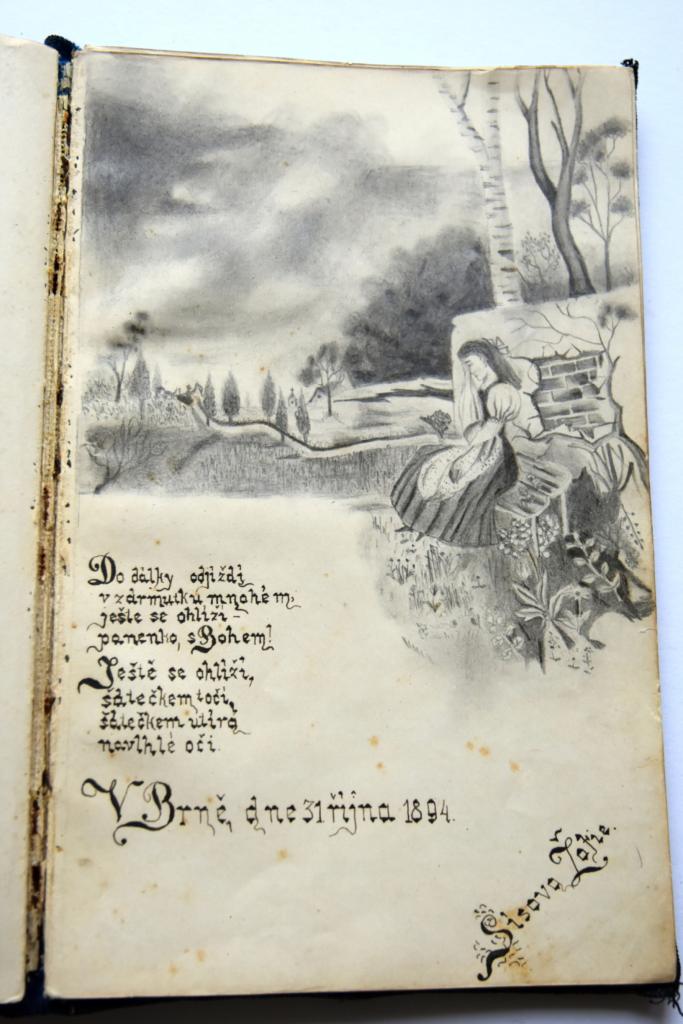 Do dálky odjíždí
v zármutku mnohém,
ještě se ohlíží -
panenko, s Bohem!
Ještě se ohlíží,
šátečkem točí,
šátečkem utírá
navlhlé oči.
V Brně, dne 31 října 1894.